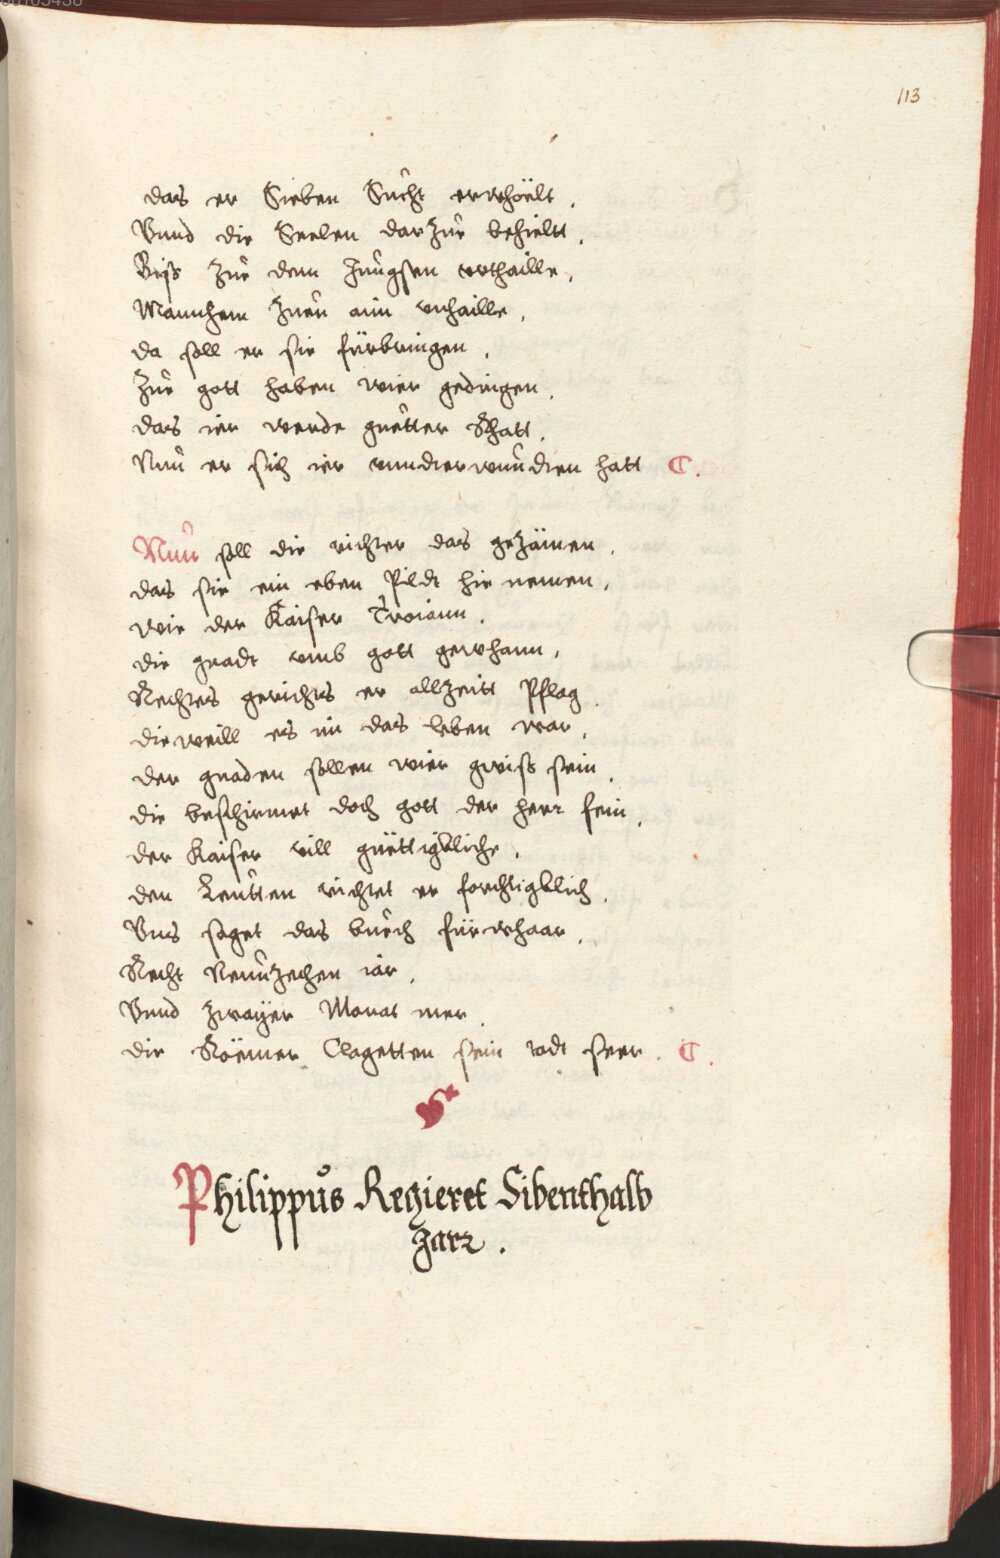 113
das er Sieben Sucht erwhöelt,
Vnnd die Seelen darzue behieltt,
Biss zue dem Jungsen vrthaille,
Mannchem zuen ain vnhaille,
da soll er sie fürbringen,
Zue gott haben wier gedingen,
das ier werde guetter Rhatt,
Nun er sich ier vnndierwundien hatt C.
Nun soll die richter das gezämen,
das sie ein eben Pildt hie nemen,
wie der Kaiser Troiann,
die gnadt vmb gott gewhann,
Rechtes gerichts er allzeitt Pflag
dieweill er im das leben war,
der gnaden sollen wier gwiss sein,
die beschirmet doch gott der herr fein,
der Kaiser vill guëttigkliche,
den Leutten richtet er forchtigklich,
Vns saget das buech fürwhaar,
Recht Neunzechen iar,
Vnnd zwayer Monat mer,
die Röemer Clagetten sein todt seer. C.
Philippus Regieret Sibenthalb
Jarr.